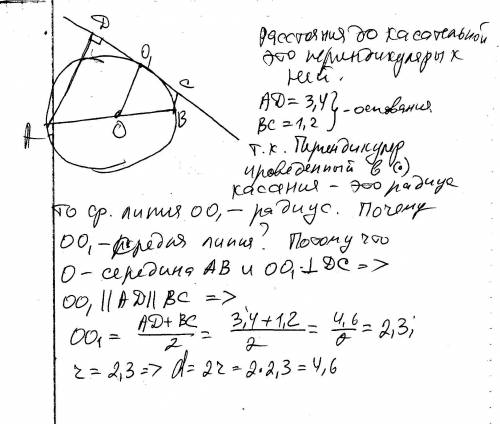 Расстояния до касательной
это перпендикуляры к
ней.
AD = 3,4
BC = 1,2
} - основания
т.к. Перпендикуляр
проведенный в (·)
касания - это радиус
то ср. линия OO₁ - радиус. Почему
OO₁ - средняя линия? Потому что
O - середина AB и OO₁ ⊥ DC =>
OO₁ || AD || BC =>
OO₁ = (AD + BC)/2 = (3,4 + 1,2)/2 = 4,6/2 = 2,3;
r = 2,3 => d = 2r = 2·2,3 = 4,6
D
O₁
C
A
O
B